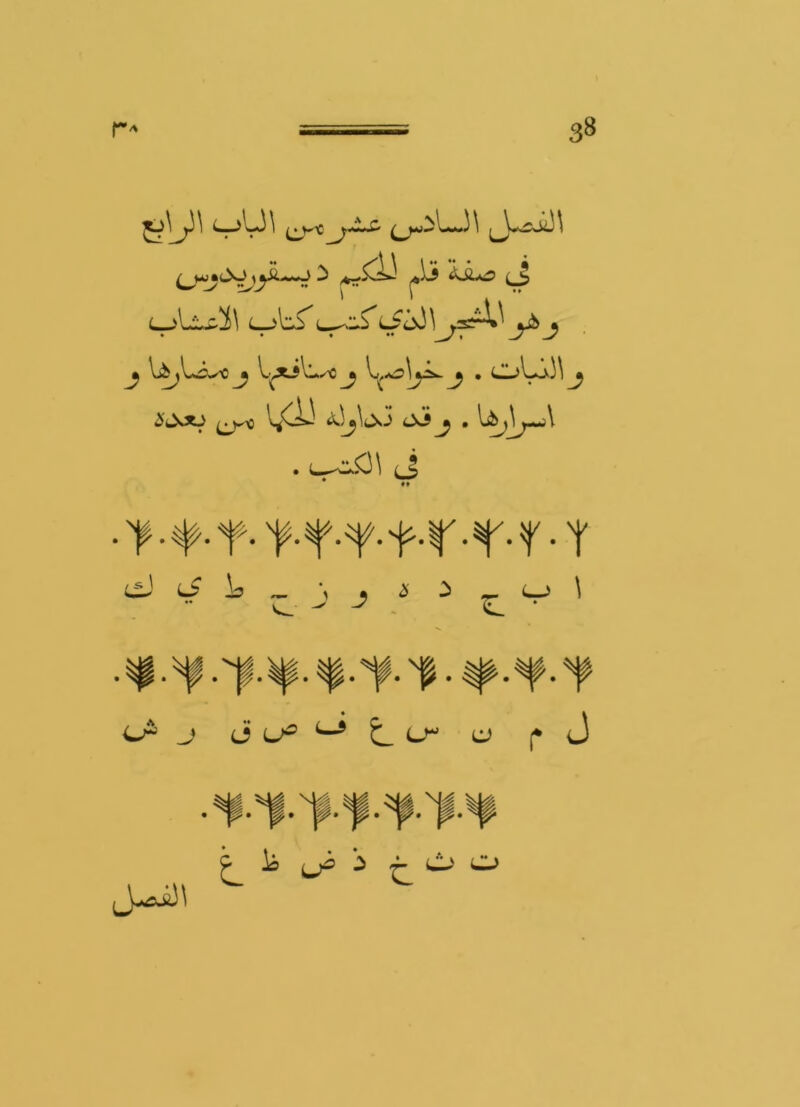 ٣٨ 38
الفصل السادس عشر من الباب الرابع
في صفة قلم الحكيم ذيسقوريدس
وهو المشجر الذي كتب كتاب الاعشاب
والنبات . وخواصها ومنافعها ومضارها و
اسرارها . وقد تداوله الحكما من بعده
في الكتب .
ا ب ج د ه و ز ح ط ي ك
ل م ن س ع ف ص ق ر ش
ت ث خ ذ ض ظ غ
الفصل